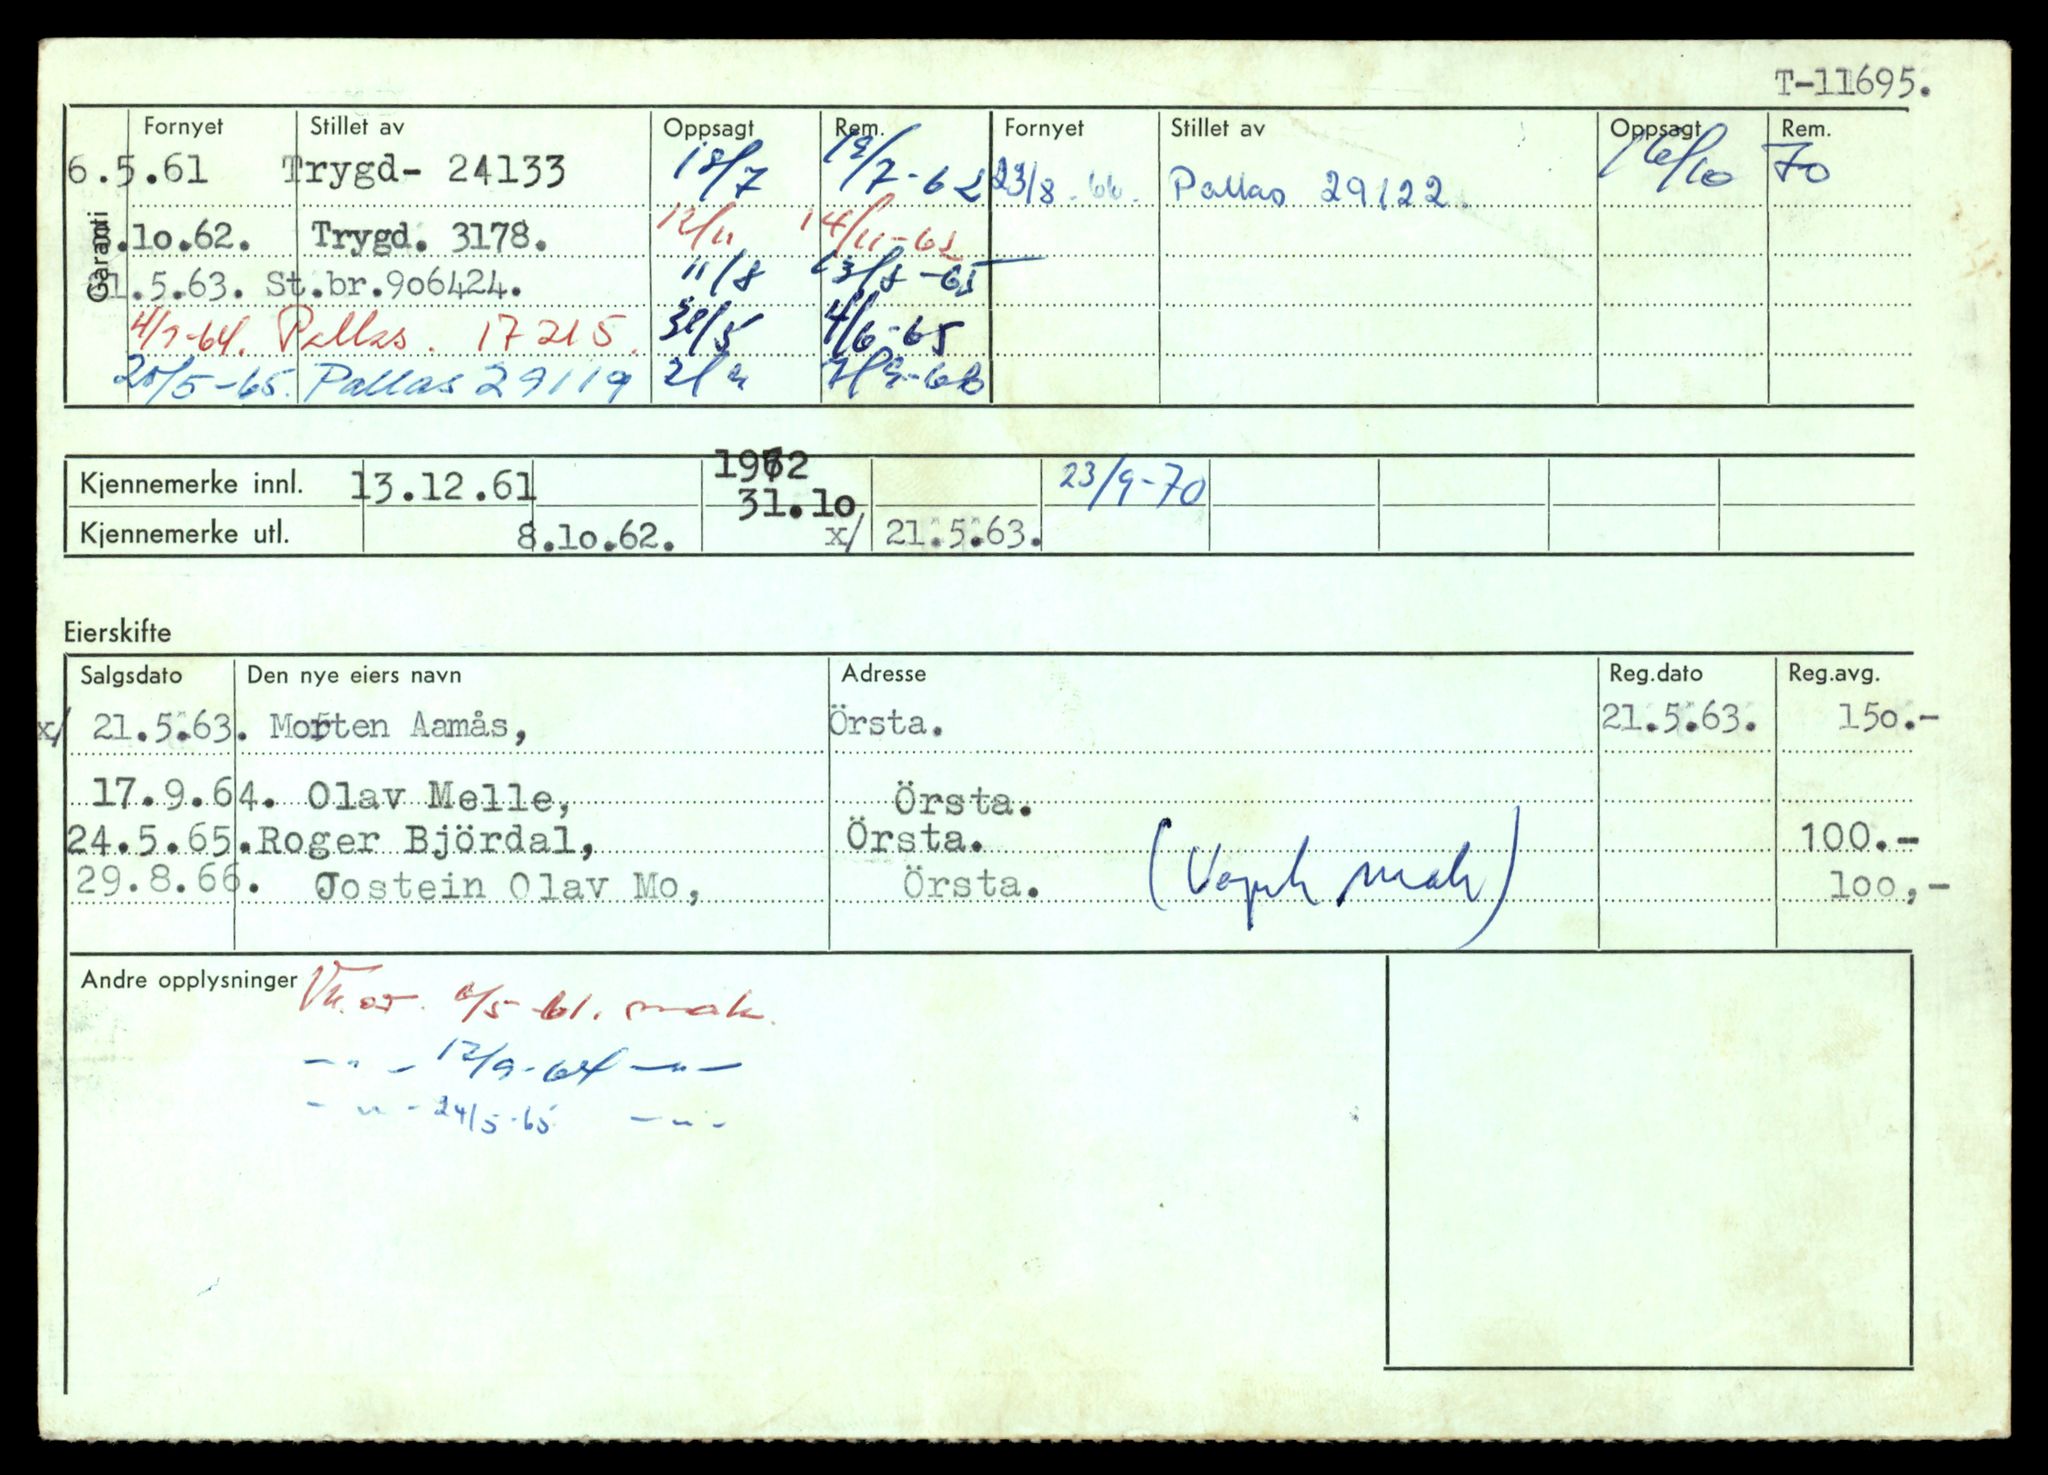 T-11695.
Garanti
Fornyet Stillet av Oppsagt Rem. Fornyet Stillet av Oppsagt Rem.
6.5.61 Trygd- 24133 18/7 19/7-62 23/8-66. Pallas 29122. 16/10 70
.10.62. Trygd. 3178. 12/11 14/11-62
1.5.63. St.br.906424. 11/8 13/8-65
4/9-64. Pallas. 17215. 31/5 4/6-65
20/5-65. Pallas 29119 2/9 7/9-66
Kjennemerke innl. 13.12.61 1962 31.10 23/9-70
Kjennemerke utl. 8.10.62. x/ 21.5.63.
Eierskifte
Salgsdato Den nye eiers navn Adresse Reg.dato Reg.avg.
x/ 21.5.63. Morten Aamås, Örsta. 21.5.63. 150.-
17.9.64. Olav Melle, Örsta.
24.5.65. Roger Björdal, Örsta. 100.-
29.8.66. Jostein Olav Mo, Örsta. (Vognk mak) 100,-
Andre opplysninger 6/5-61. mak.
- " - 17/9-64 - " -
- " - 24/5-65 - " -